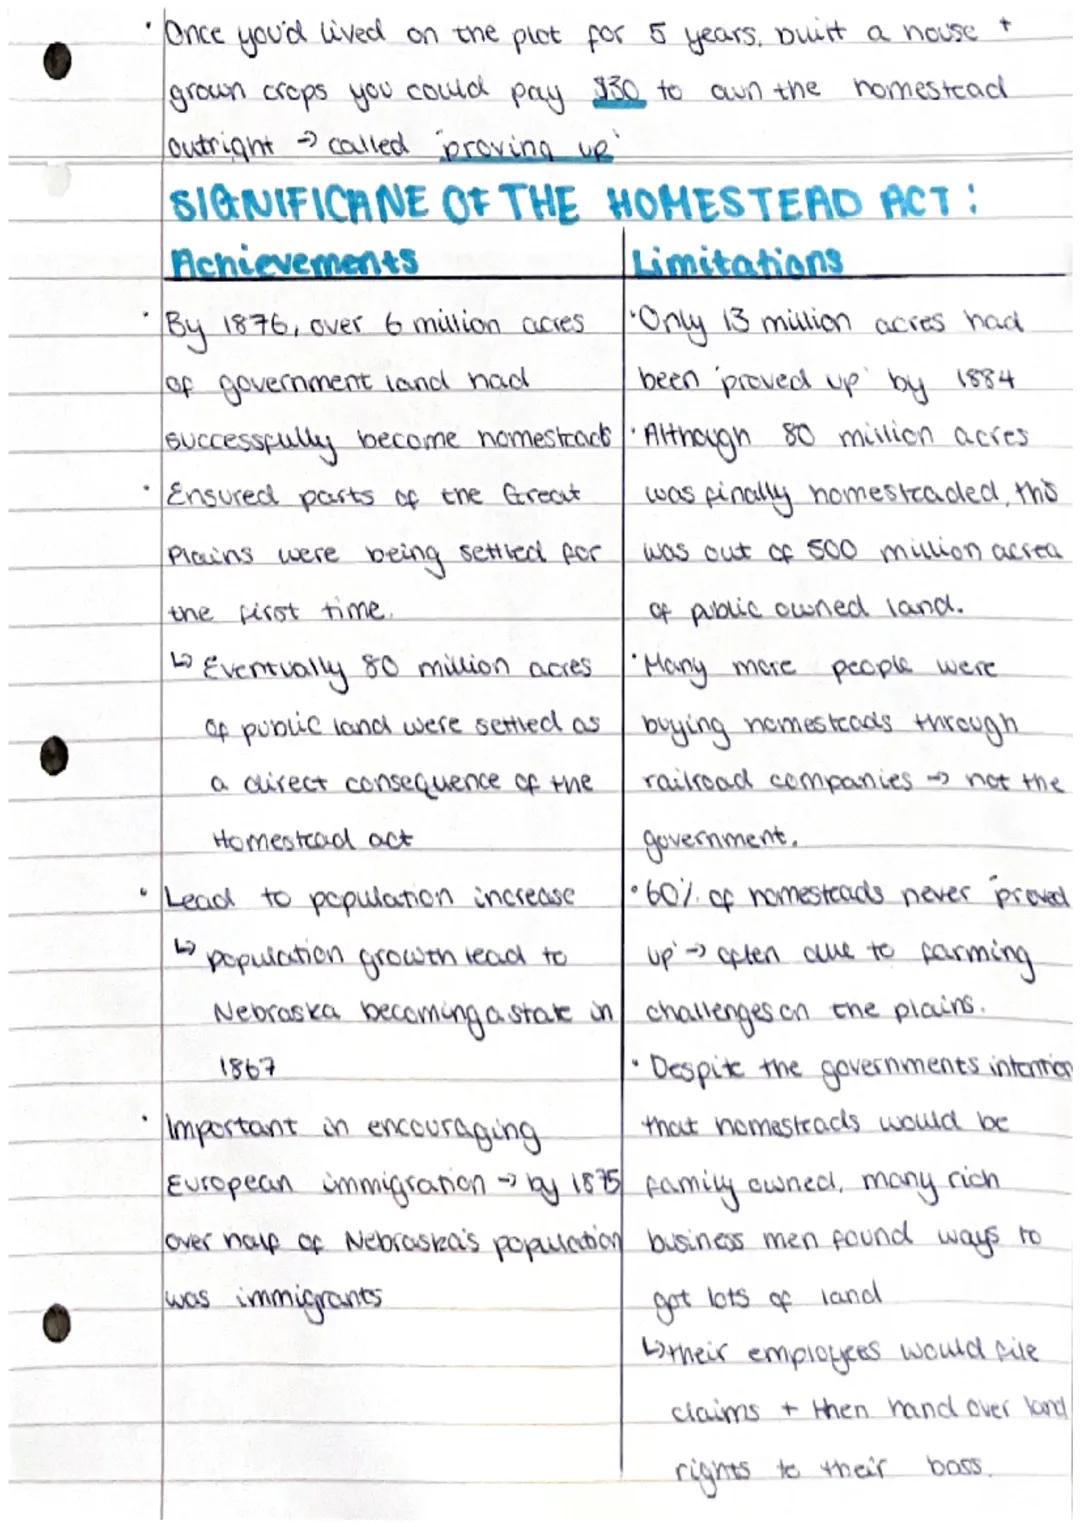 · Once you'd lived on the plot for 5 years, built a house +
grown crops you could pay $30 to own the homestead
outright → called 'proving up'
SIGNIFICANE OF THE HOMESTEAD ACT:
Achievements
· By 1876, over 6 million acres
of government land had
successfully become homesteads
· Ensured parts of the Great
Plains were being settled for
the first time.
↳ Eventually 80 million acres
of public land were settled as
a direct consequence of the
Homestead act
· Lead to population increase
↳ population growth lead to
Nebraska becoming a state in
1867
· Important in encouraging
European immigration → by 1875
over half of Nebraska's population
was immigrants
Limitations
· Only 13 million acres had
been 'proved up' by 1884
· Although 80 million acres
was finally homesteaded, this
was out of 500 million acrea
of public owned land.
· Many more people were
buying homesteads through
railroad companies → not the
government.
· 60% of homesteads never 'proved
up' → often due to farming
challenges on the plains.
· Despite the governments intention
that homesteads would be
family owned, many rich
business men found ways to
got lots of land
↳ their employees would file
claims + then hand over land
rights to their boss.